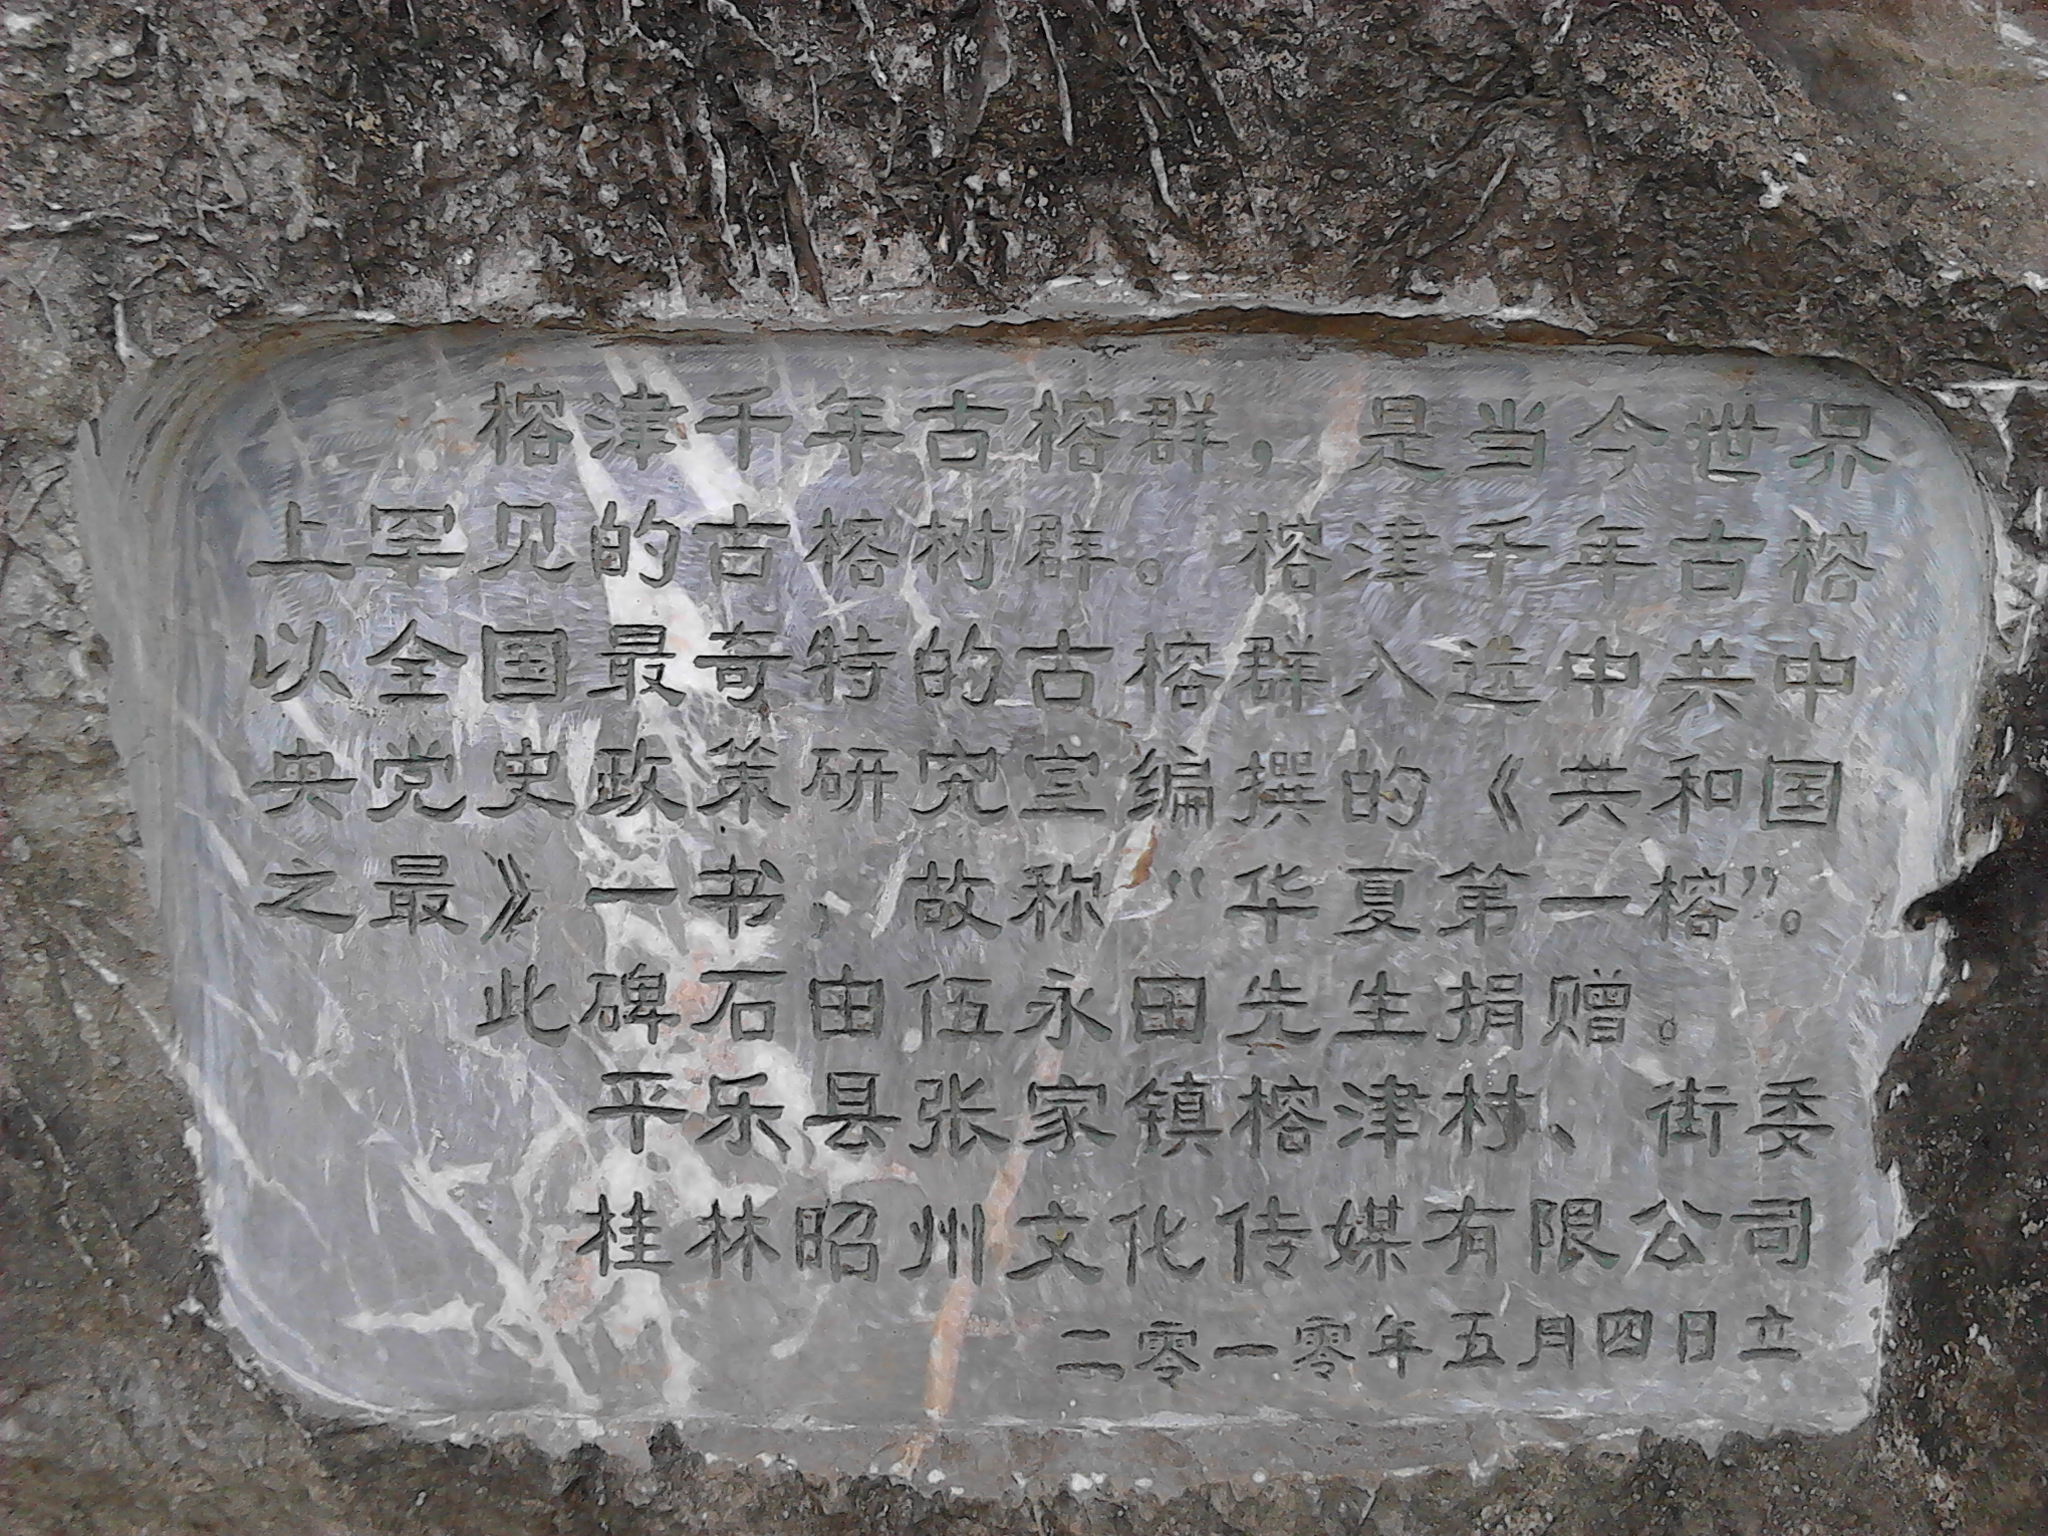 榕津千年古榕群，是当今世界
上罕见的古榕树群。榕津千年古榕
以全国最奇特的古榕群入选中共中
央党史政策研究室编撰的《共和国
之最》一书，故称“华夏第一榕”。
此碑石由伍永田先生捐赠。
平乐县张家镇榕津村、街委
桂林昭州文化传媒有限公司
二零一零年五月四日立